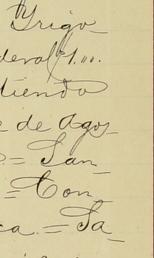 Trigo
deral f. m.
tiendo
e de Agos_
= San_
= Con_
ca. = Sa_